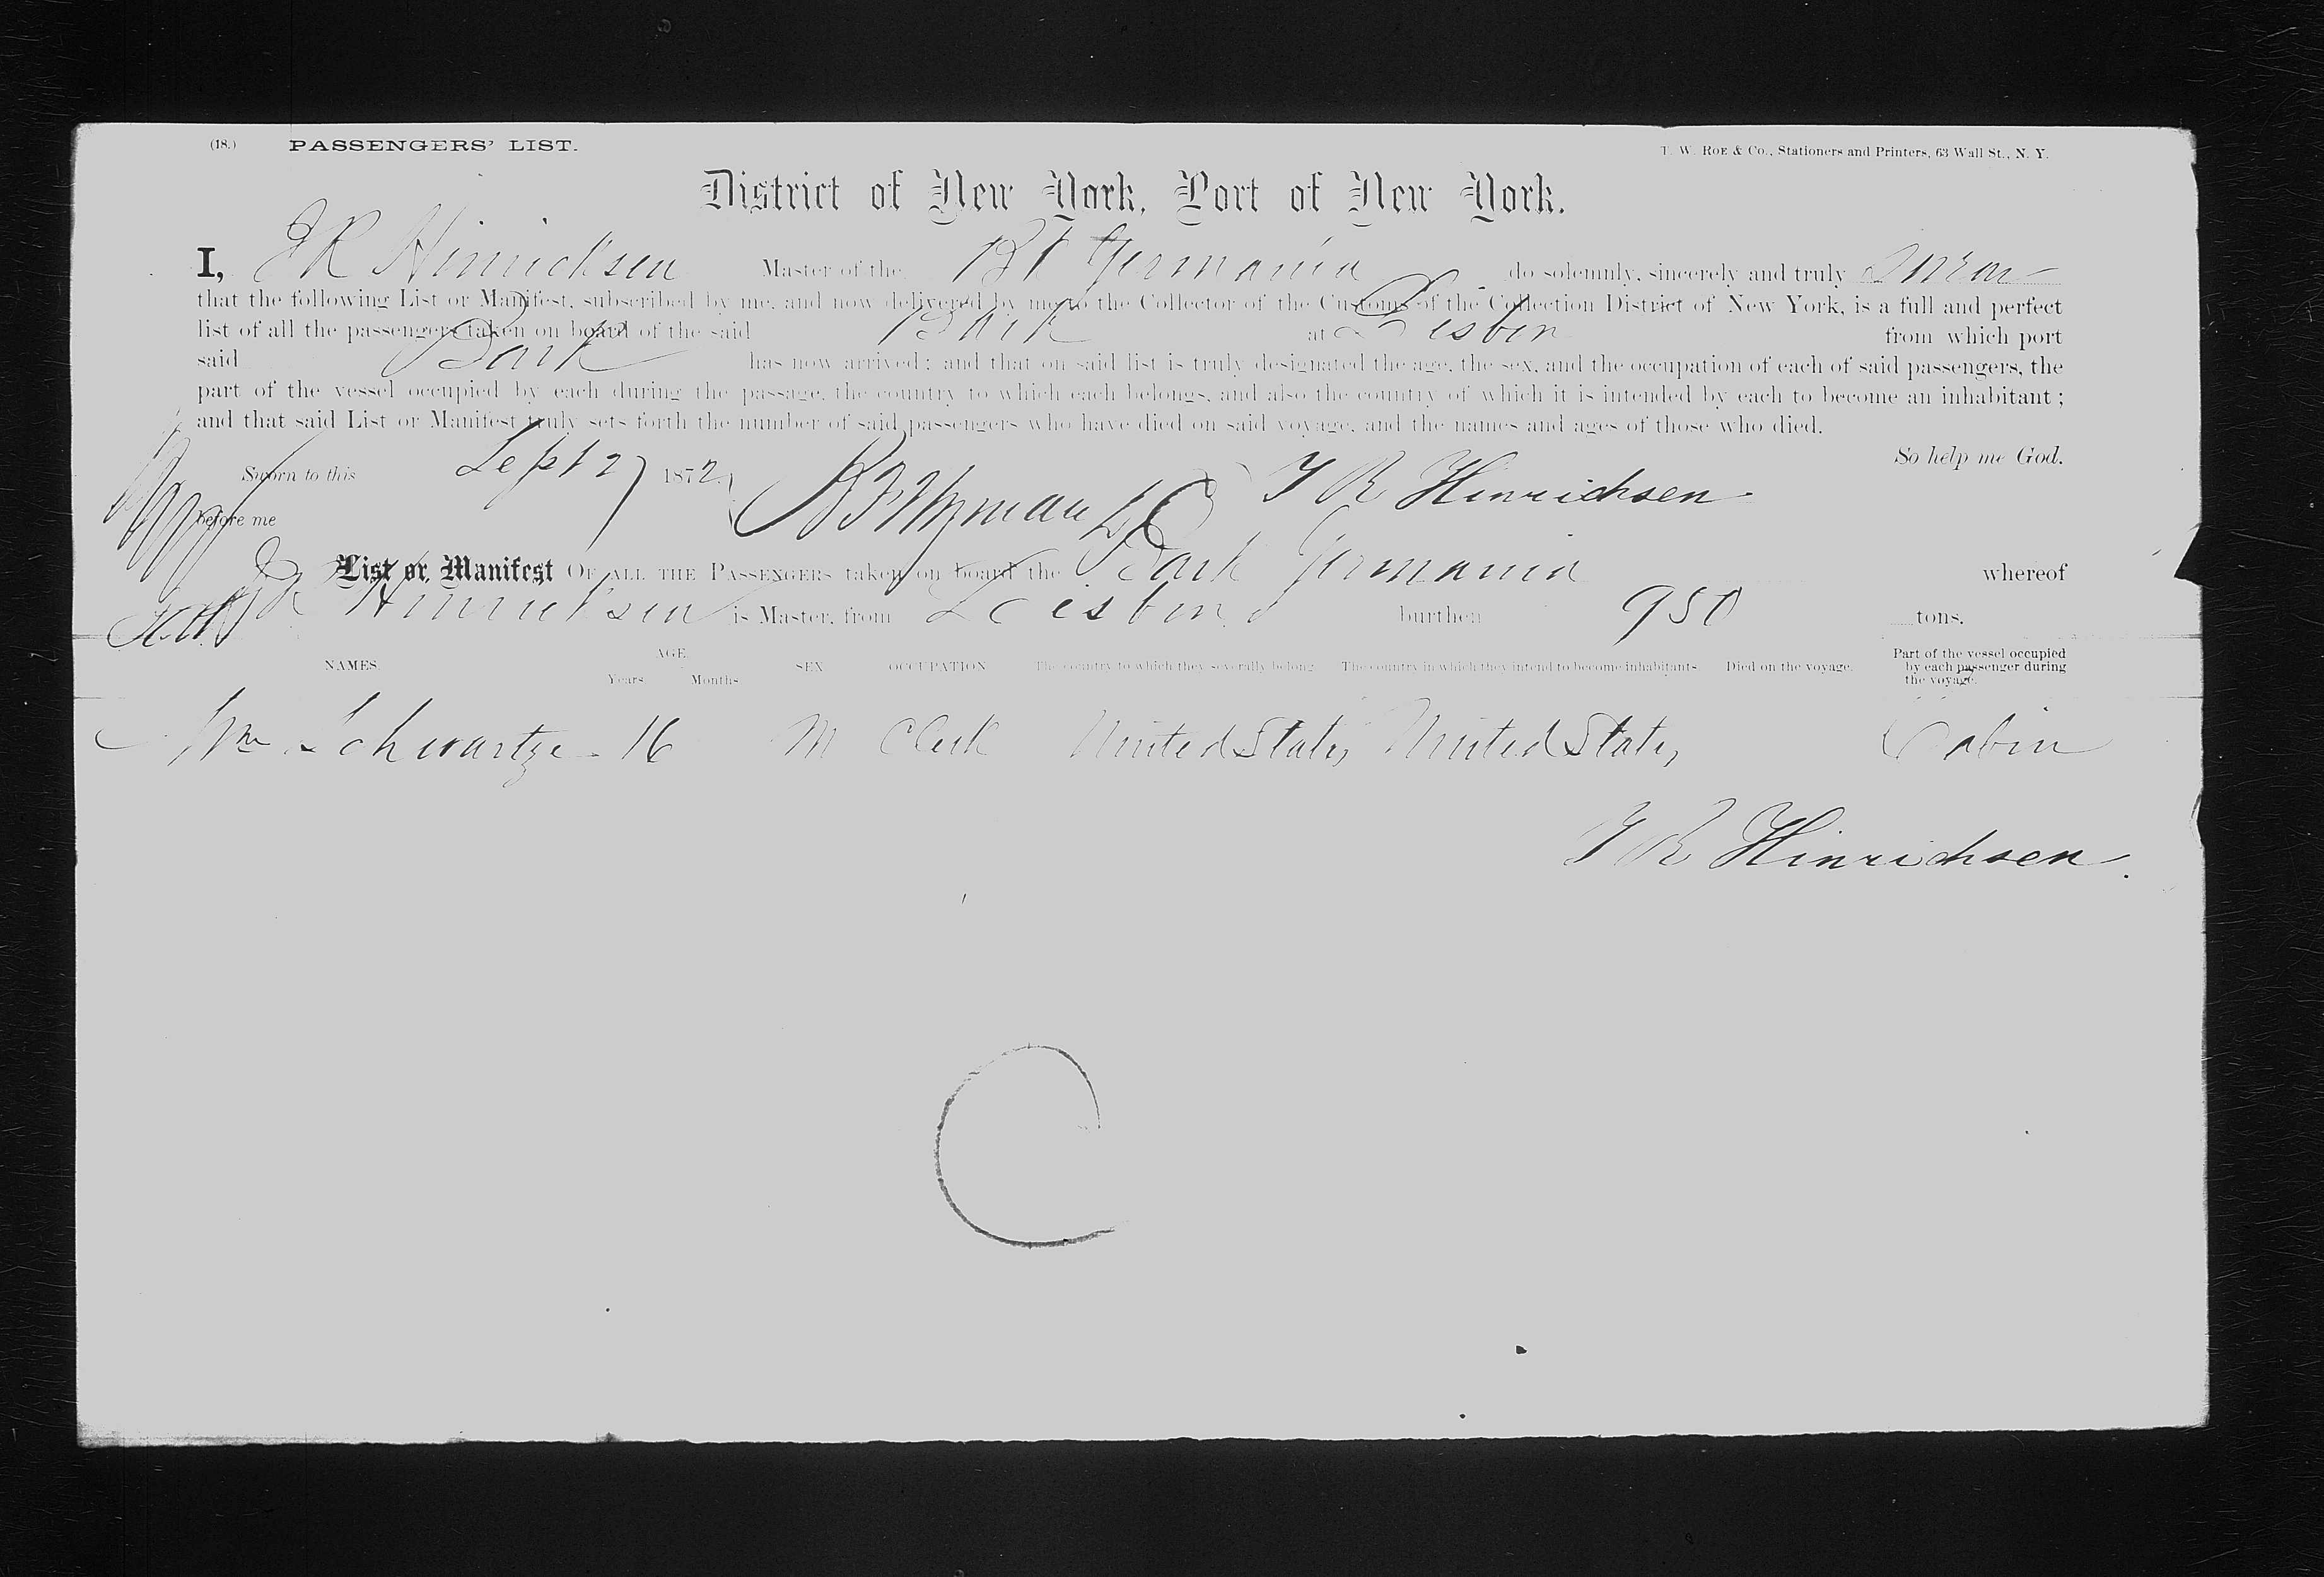 (18.) PASSENGERS' LIST. T. W. ROE & Co., Stationers and Printers, 63 Wall St., N. Y.
District of New York, Port of New York.
I, J R Hinrichsen Master of the Bk Germania do solemnly, sincerely and truly Swear
that the following List or Manifest, subscribed by me, and now delivered by me to the Collector of the Customs of the Collection District of New York, is a full and perfect
list of all the passengers taken on board of the said Bark at Lisbon from which port
said Bark has now arrived; and that on said list is truly designated the age, the sex, and the occupation of each of said passengers, the
part of the vessel occupied by each during the passage, the country to which each belongs, and also the country of which it is intended by each to become an inhabitant;
and that said List or Manifest truly sets forth the number of said passengers who have died on said voyage, and the names and ages of those who died.
So help me God.
Sworn to this Sept 27 1872 J R Hinrichsen
before me
List or Manifest OF ALL THE PASSENGERS taken on board the Bark Germania whereof
J R Hinrichsen is Master, from Lisbon burthen 950 tons.
NAMES. AGE Years Months SEX OCCUPATION The country to which they severally belong The country in which they intend to become inhabitants. Died on the voyage. Part of the vessel occupied by each passenger during the voyage.
Wm Schwartze 16 M Clerk United States United States Cabin
J R Hinrichsen.